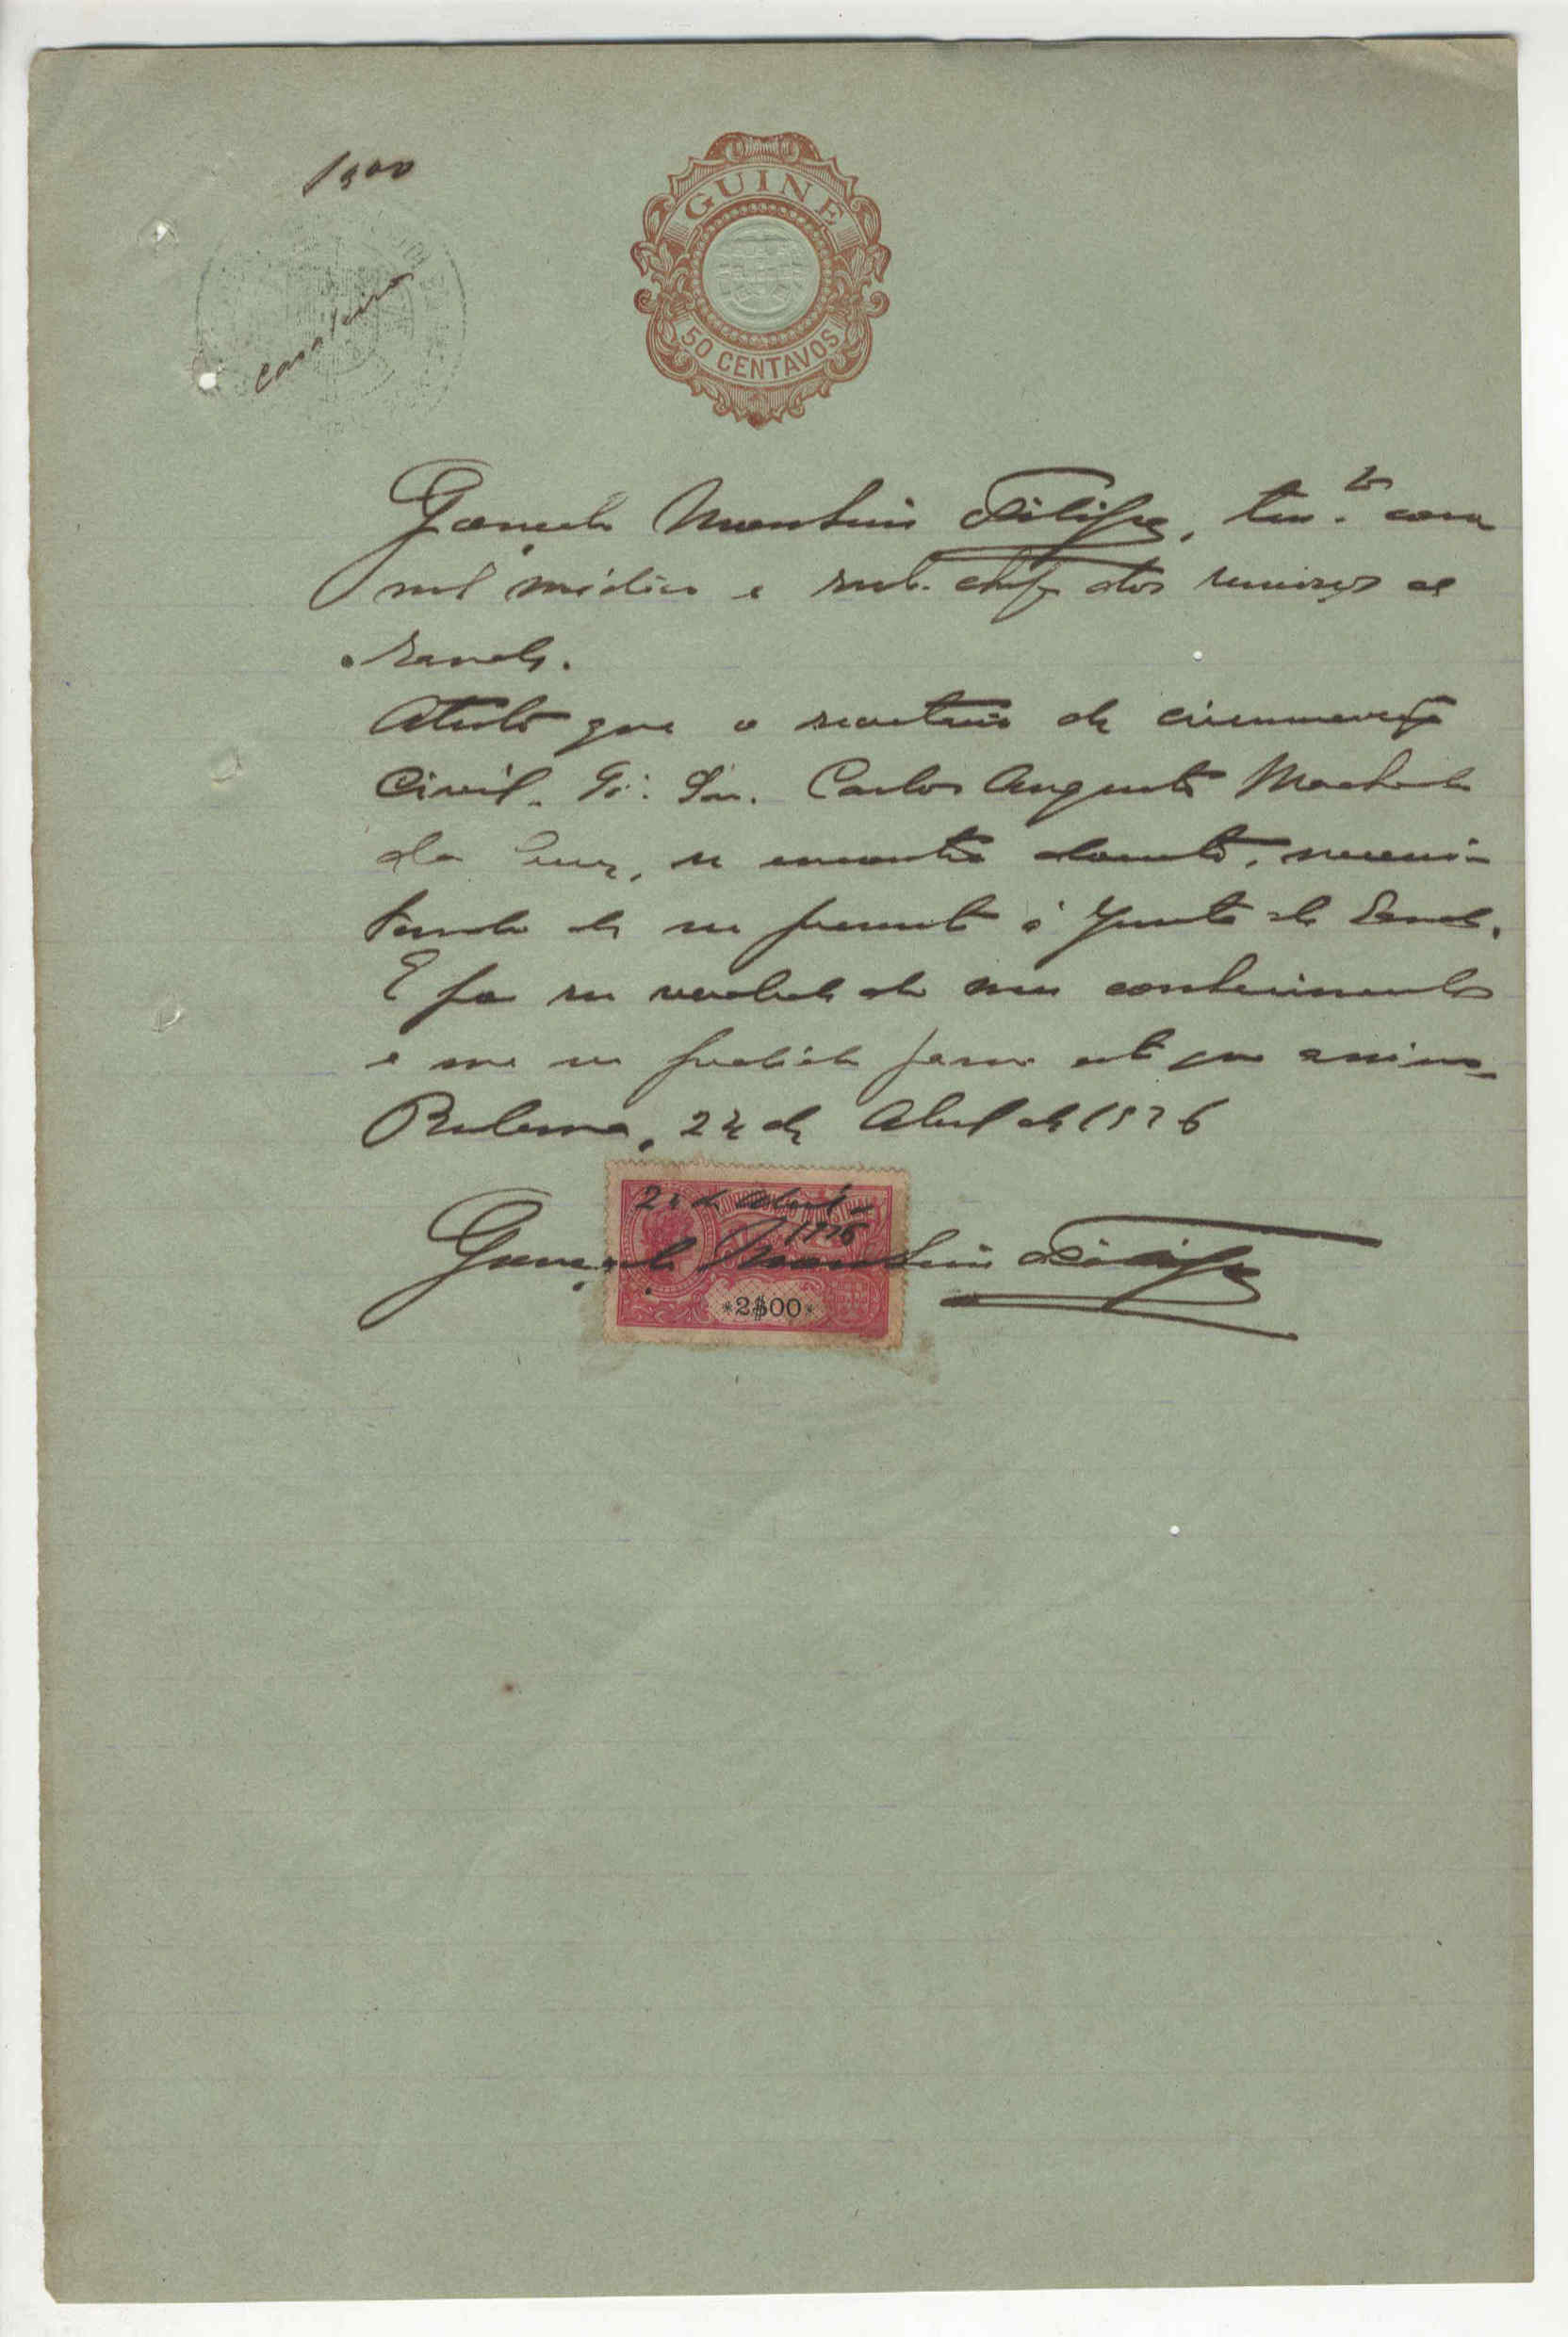 1$00
GUINE
50 CENTAVOS
Gonçalo Monteiro Filipe, ten.te coro
nel médico e sub-chefe dos serviços de
saude.
Atesto que o secretario de circunscrição
Civil, Carlos Augusto Machado
da Cruz, se encontra doente, necessi-
tando de ser presente á Junta de Saude.
E por ser verdade do meu conhecimento
e me ser pedido passo este que assino.
Bolama, 24 de Abril de 1926
24 de Abril
1926
Gonçalo Monteiro Filipe
*2$00*